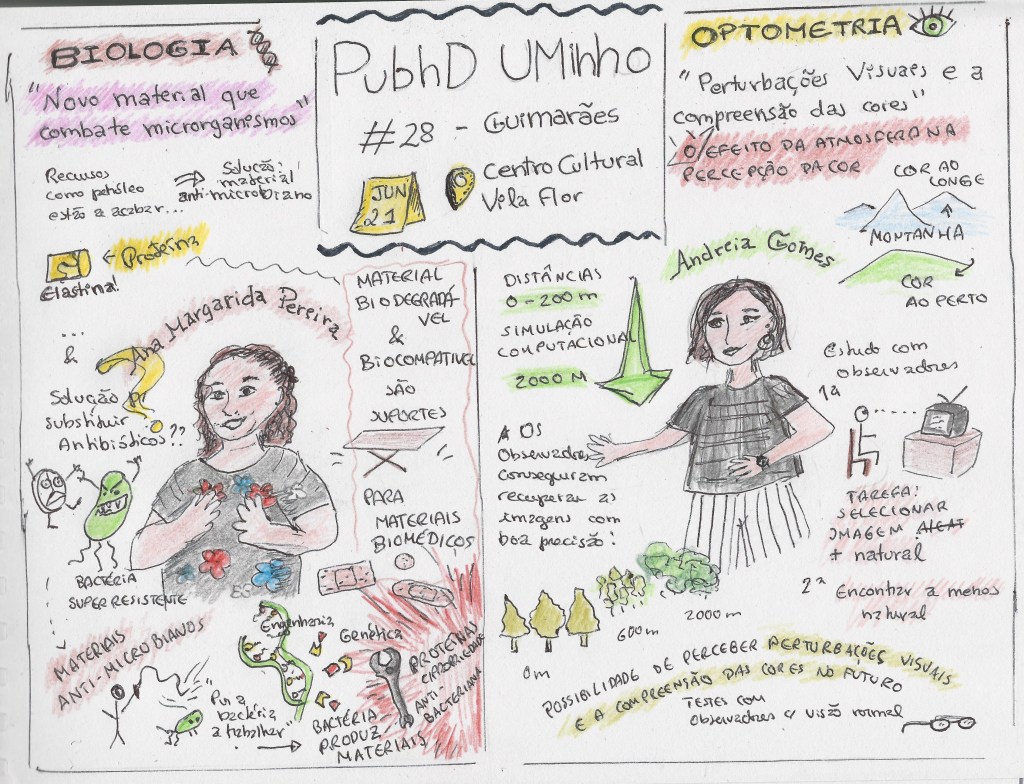 BIOLOGIA
"Novo material que
combate microrganismos"
Recursos
como petróleo
estão a acabar...
Solução:
material
anti-microbiano
Proteína
Elastina!
...
&
Solução p/
substituir
Antibióticos??
Ana Margarida Pereira
BACTÉRIA
SUPER RESISTENTE
MATERIAIS
ANTI-MICROBIANOS
"Pôr a
bactéria
a trabalhar"
Engenharia
Genética
BACTÉRIA
PRODUZ
MATERIAIS
PROTEÍNAS
ANTI-
BACTERIANA
MATERIAL
BIODEGRADÁ
VEL
&
BIOCOMPATIVEL
SÃO
SUPORTES
PARA
MATERIAIS
BIOMÉDICOS
PubhD UMinho
#28 - Guimarães
JUN
21
Centro Cultural
Vila Flor
OPTOMETRIA
"Perturbações Visuais e a
compreensão das cores"
O EFEITO DA ATMOSFERO NA
PERCEPÇÃO DA COR
COR AO
LONGE
MONTANHA
COR
AO PERTO
Andreia Gomes
DISTÂNCIAS
0-200m
SIMULAÇÃO
COMPUTACIONAL
2000 M
A OS
Observadores
conseguiram
recuperar as
imagens com
boa precisão!
Estudo com
observadores
1ª
TAREFA:
SELECIONAR
IMAGEM
+ natural
2ª
Encontrar a menos
natural
0m
600m
2000m
POSSIBILIDADE DE PERCEBER PERTURBAÇÕES VISUAIS
E A COMPREENSÃO DAS CORES NO FUTURO
TESTES COM
Observadores c/ visão normal